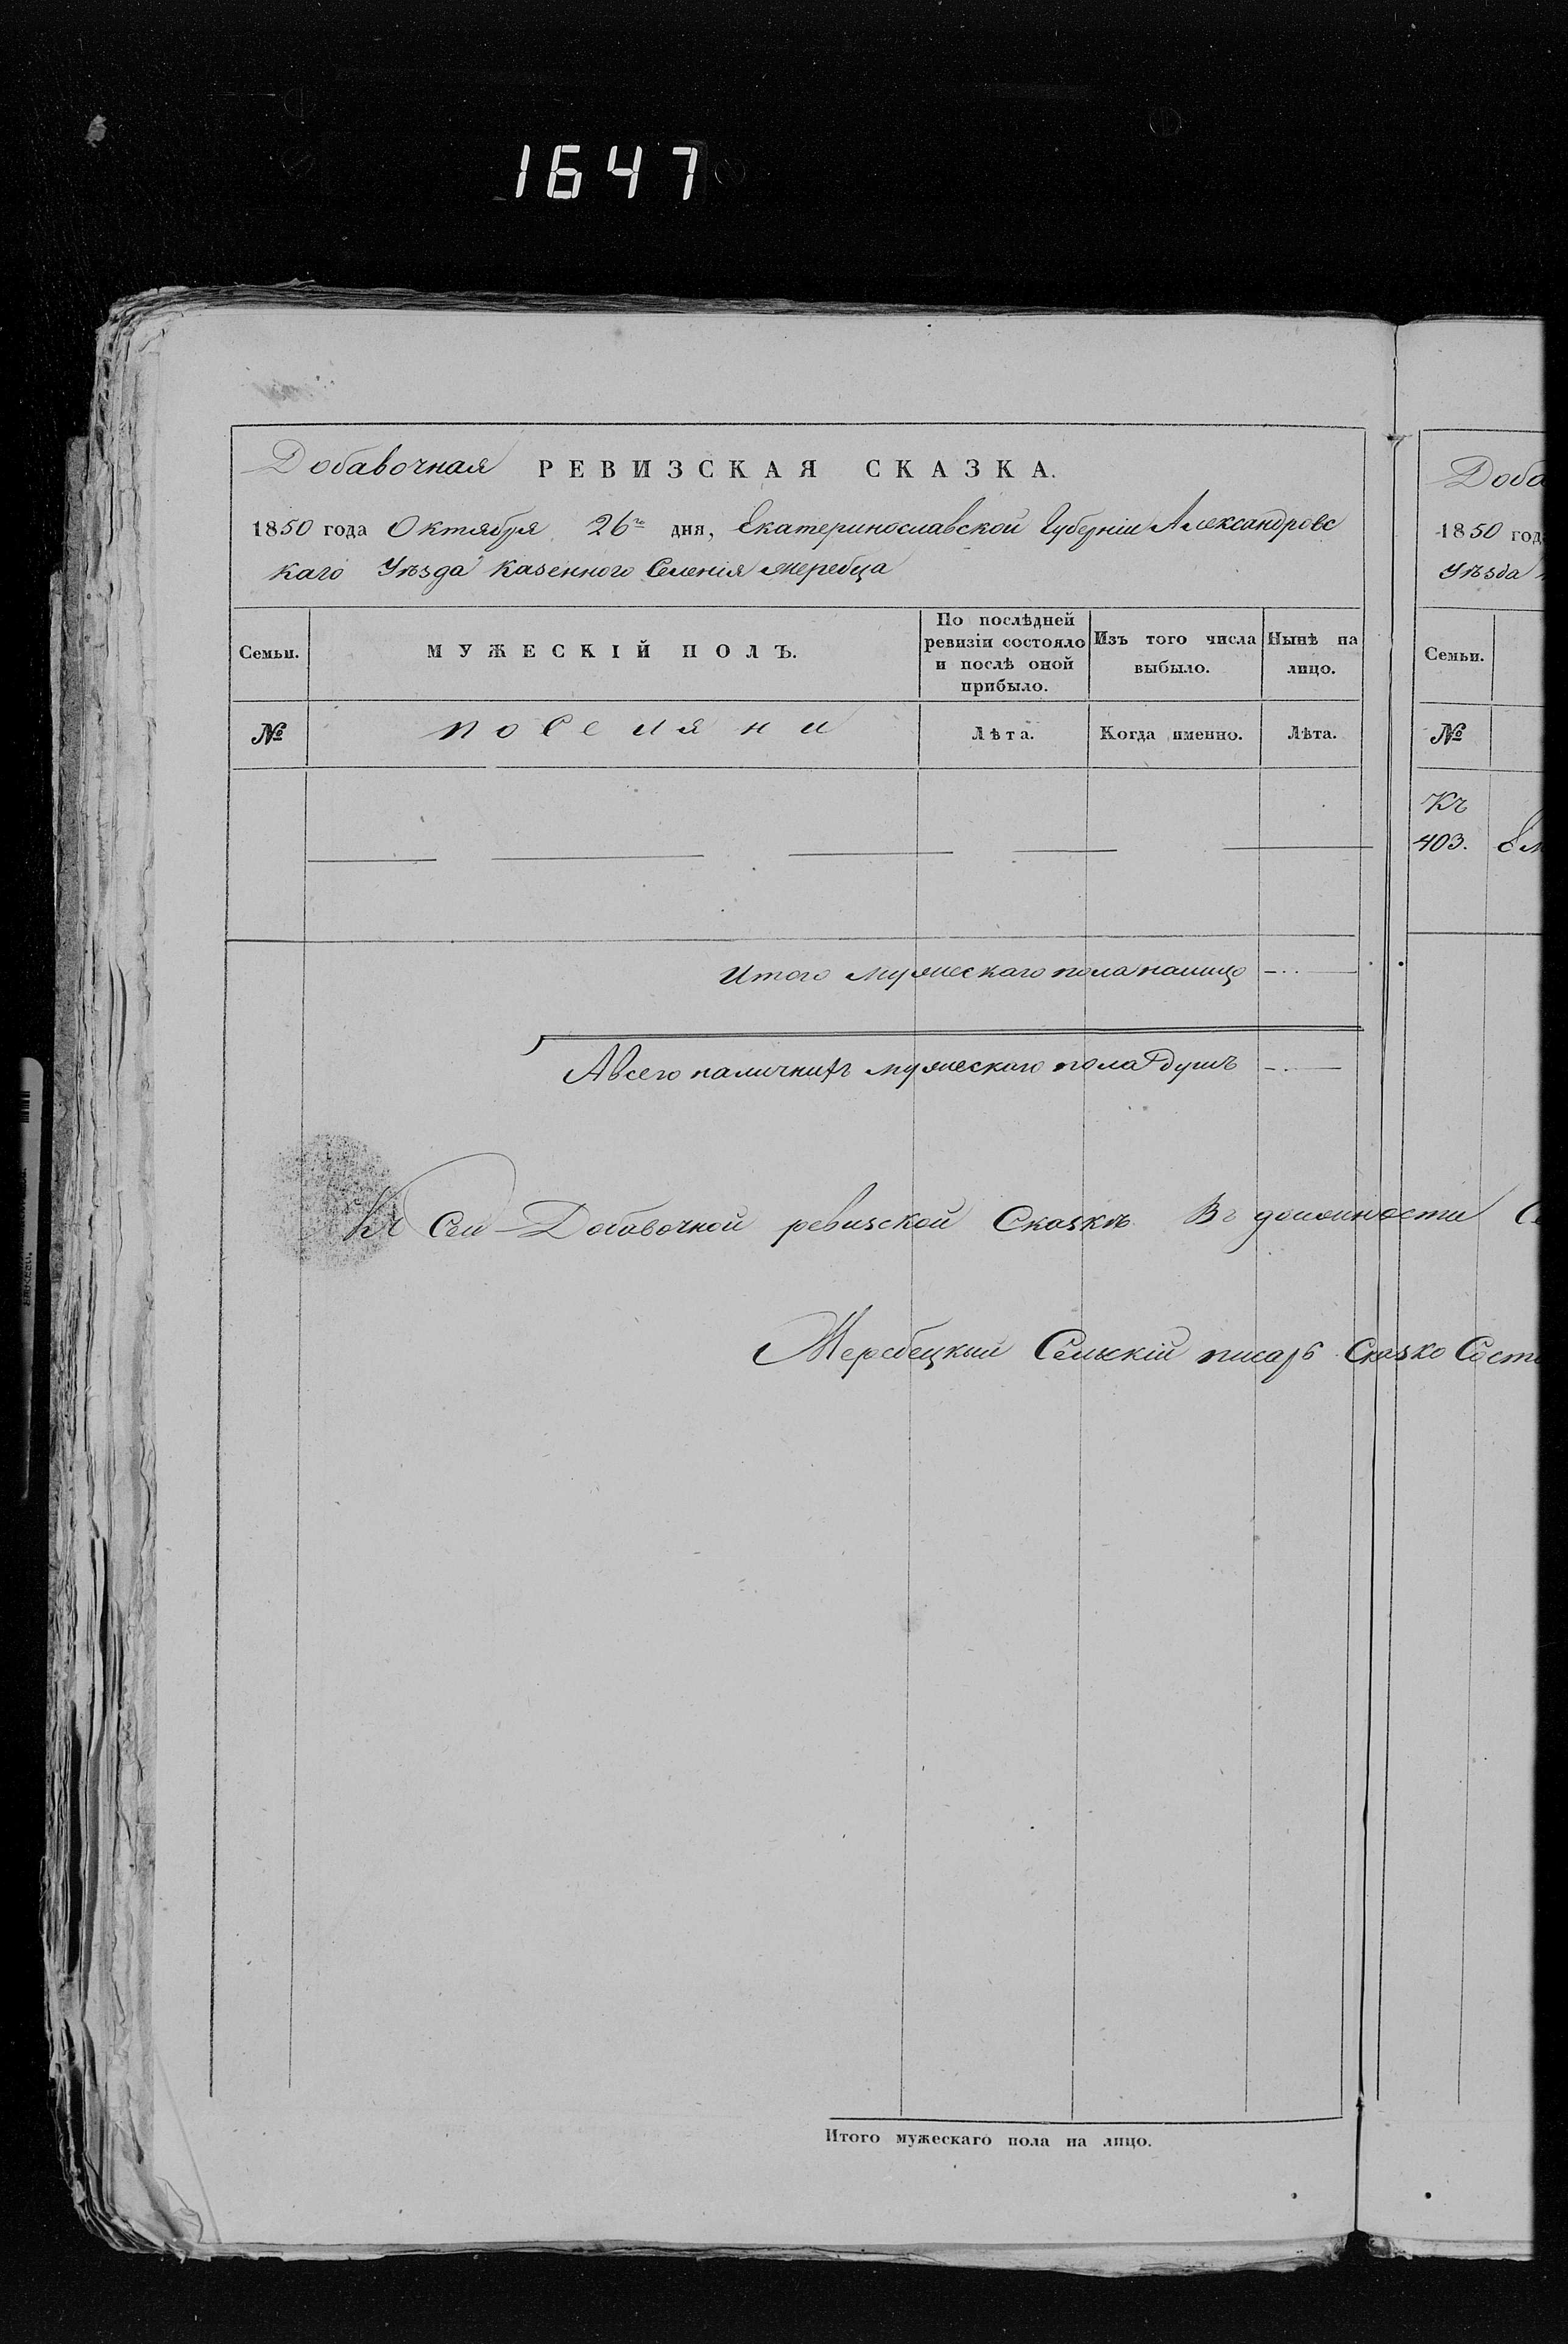 1647
Добавочная РЕВИЗСКАЯ СКАЗКА.
1850 года Октября 26го дня, Екатеринославской Губерніи Александровс
каго Уѣзда казенного Селенія Жеребца
Семьи.
МУЖЕСКІЙ ПОЛЪ.
По послѣдней
ревизіи состояло
и послѣ оной
прибыло.
Изъ того числа
выбыло.
Нынѣ на
лицо.
№
поселяни
Лѣта.
Когда именно.
Лѣта.
Итого мужескаго пола налицо
А всего наличнихъ мужеского пола душъ
Къ Сей Добавочной ревизской Сказкѣ Въ должности
Жеребецкий Сельскій писарь Сказко
Итого мужескаго пола на лицо.
Доба
1850 год
Уѣзда
Семьи.
№
Къ
403.